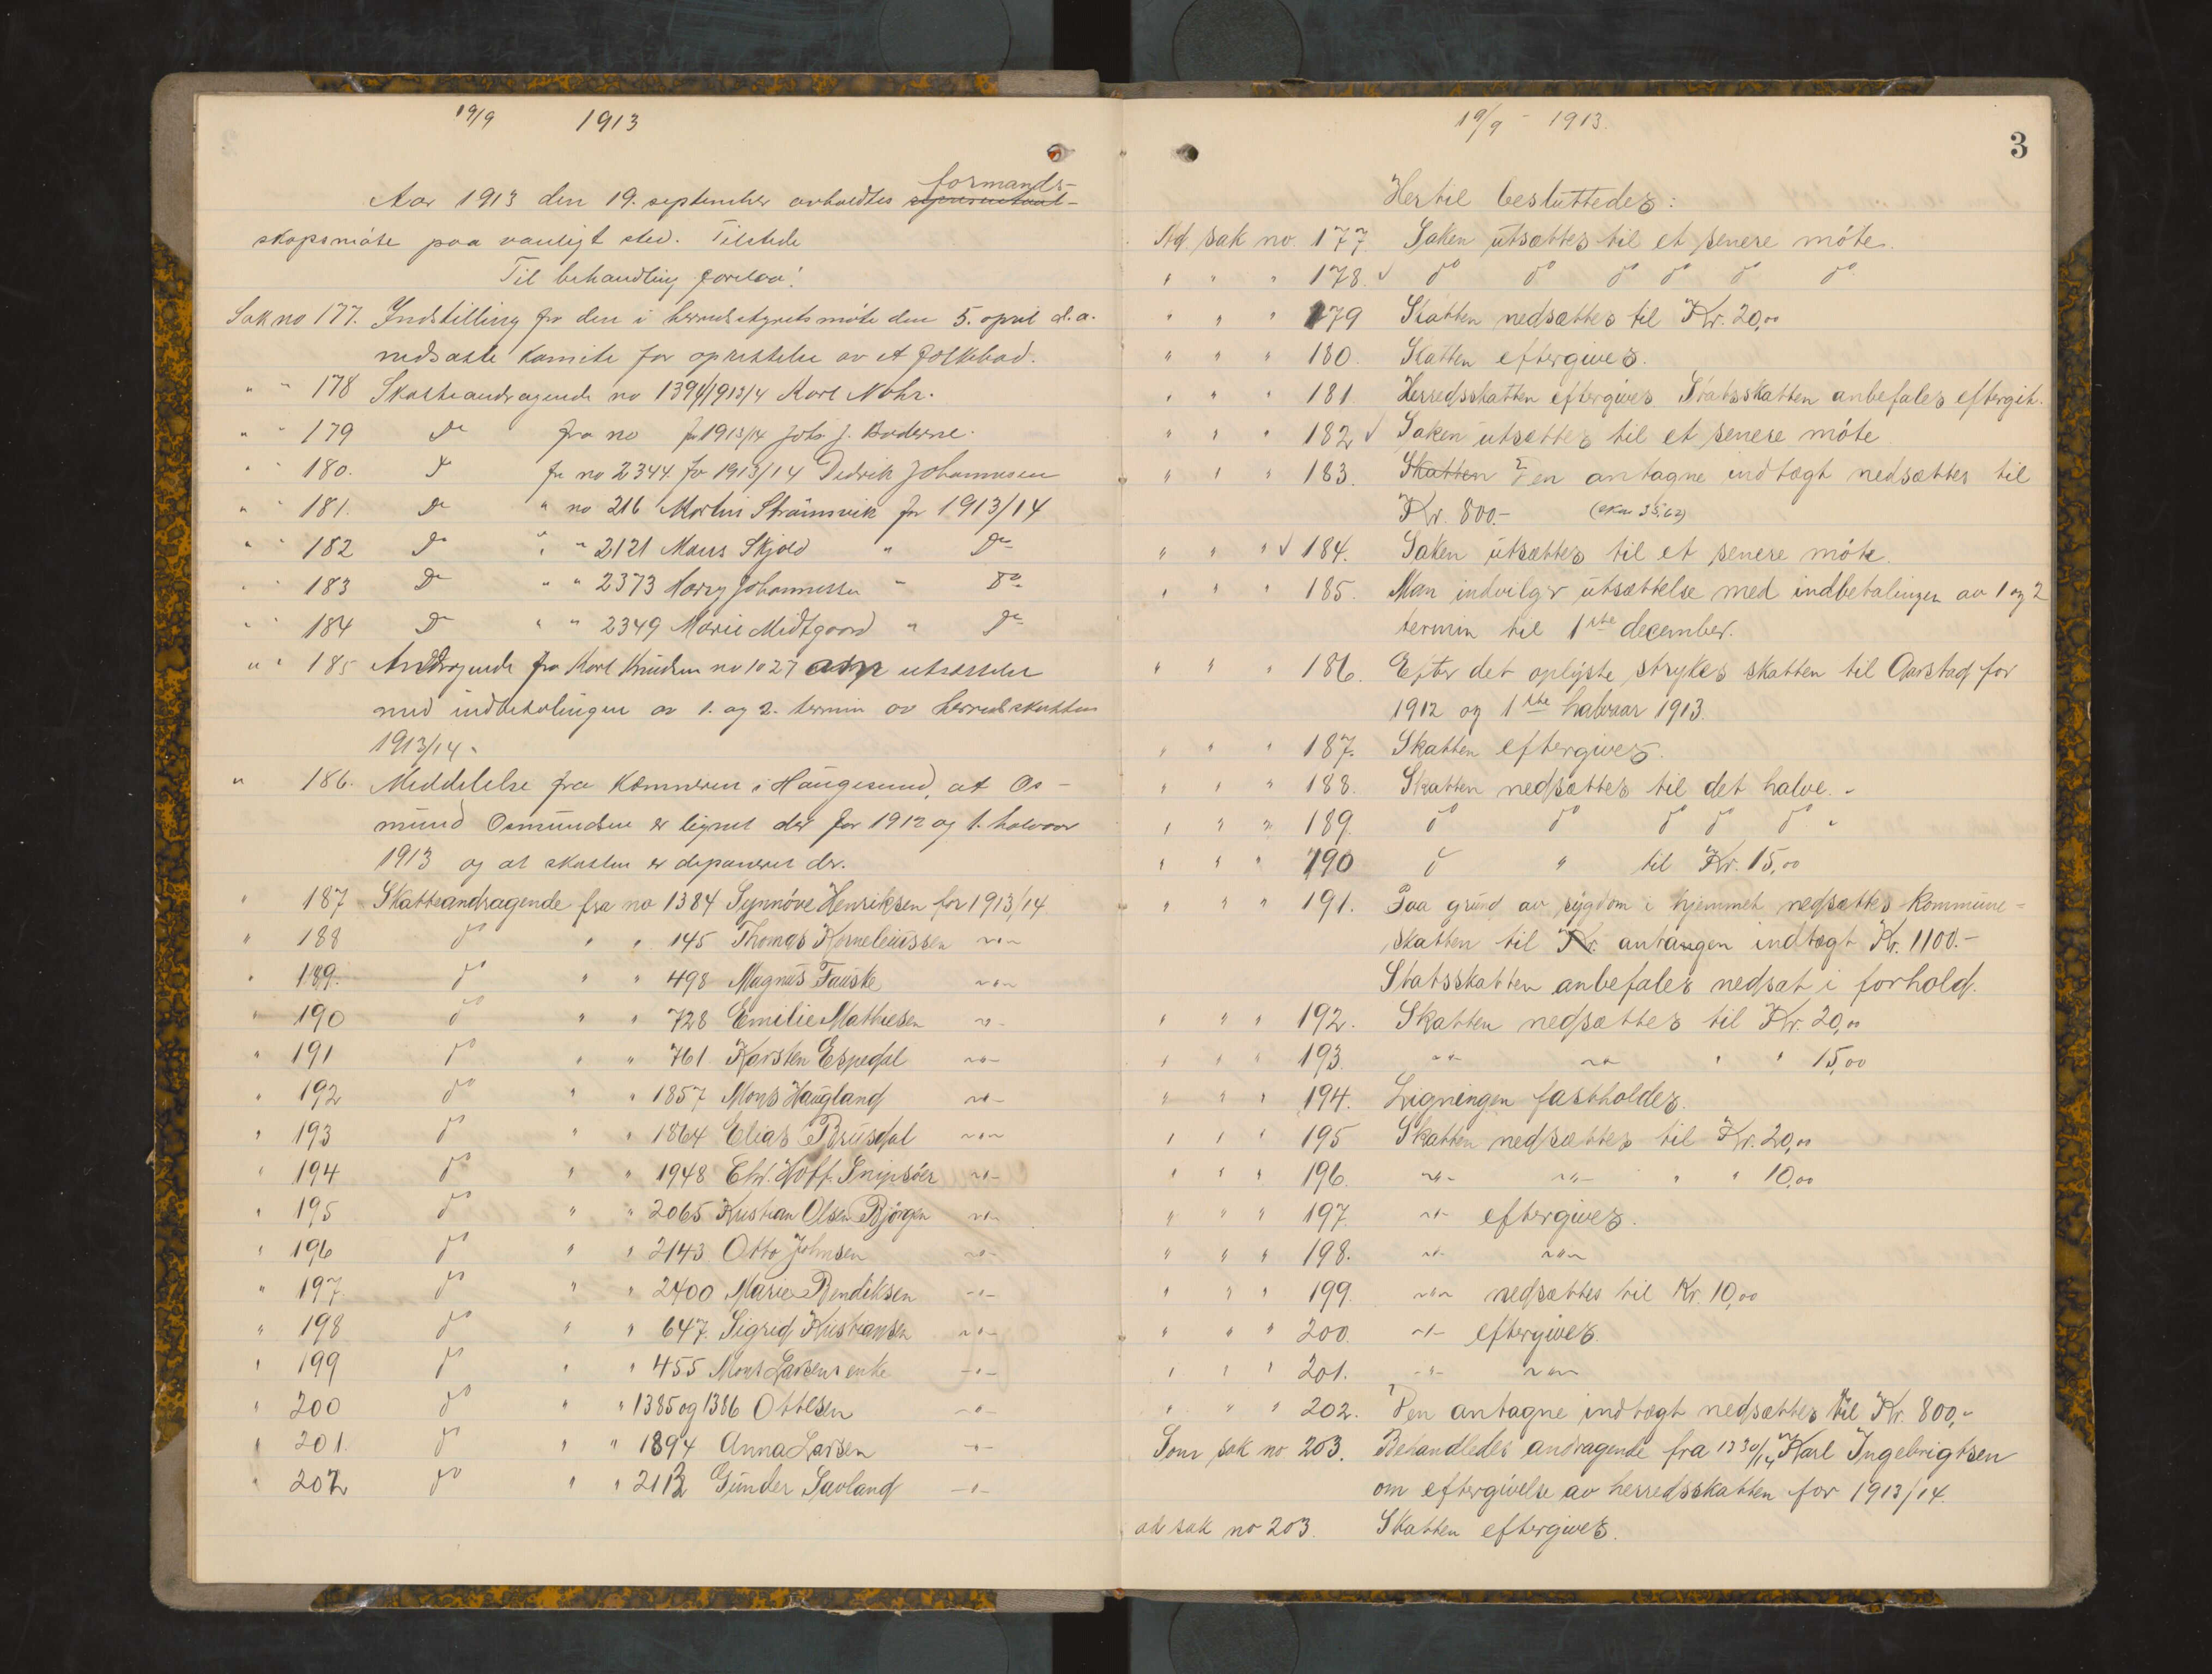 19/9 1913
formands-
Aar 1913 den 19. september avholdtes
skapsmøte paa vanligt sted. Tilstede
Til behandling forelaa:
Sak no 177. Indstilling fra den i herredsstyrets møte den 5. april d.a.
nedsatte komite for oprettelse av et folkebad.
" " 178 Skatteandragende no 1391/1913/4 Karl Nohr.
" " 179 Do fra no for 1913/14 Johs J.
" " 180. Do fra no 2344. for 1913/14 Dedrik Johannesen
" " 181. Do " no 216 Martin Strømsvik for 1913/14
" " 182 Do " " 2121 Mons Skjold " Do
" " 183 Do " " 2373 Harry Johannessen " Do
" " 184 Do " " 2349 Marie Midtgaard " Do
" " 185 Andragende fra Karl Knudsen no 1027 om utsættelse
med indbetalingen av 1. og 2. termin av herredsskatten
1913/14.
" 186. Meddelelse fra kæmneren i Haugesund, at Os-
mund Osmundsen er lignet der for 1912 og 1. halvaar
1913 og at skatten er deponeret der.
" 187 Skatteandragende fra no 1384 Synnöve Henriksen for 1913/14
" 188 do " " 145 Thomas Korneliussen -"-
" 189. do " " 498 Magnus Fauske -"-
" 190 do " " 728 Emilie Mathiesen -"-
" 191 do " " 761 Karsten Espedal -"-
" 192 do " " 1857 Mons Haugland -"-
" 193 do " " 1864 Elias Brusdal -"-
" 194 do " " 1948 Hoff. -"-
" 195 do " " 2065 Kristian Olsen Björgen -"-
" 196 do " " 2143 Otto Johnsen -"-
" 197. do " " 2400 Marie Bendiksen -"-
" 198 do " " 647. Sigrid Kristiansen -"-
" 199 do " " 455 Mons Larsens enke -"-
" 200 do " " 1385 og 1386 Ottesen -"-
" 201. do " " 1894 Anna Larsen -"-
" 202 do " " 2112 Gunder Savland -"-
19/9 - 1913.
3
Hertil besluttedes:
Ad. sak no. 177. Saken utsættes til et senere möte.
" " " 178. √ do do do do do do
" " " 179 Skatten nedsættes til Kr. 20,00
" " " 180. Skatten eftergives.
" " " 181. Herredsskatten eftergives. Statsskatten anbefales eftergit.
" " " 182 √ Saken utsættes til et senere möte.
" " " 183. Skatten Den antagne indtægt nedsættes til
Kr. 800.-
" " " √ 184. Saken utsættes til et senere möte.
" " " 185. Man indvilger utsættelse med indbetalingen av 1 og 2
termin til 1ste december.
" " " 186. Efter det oplyste strykes skatten til Aarstad for
1912 og 1ste halvaar 1913.
" " " 187. Skatten eftergives.
" " " 188. Skatten nedsættes til det halve. -
" " " 189. do do do do do "
" " " 190 do " til Kr. 15,00
" " " 191. Paa grund av sygdom i hjemmet nedsættes kommune-
skatten til Kr. antangen indtægt Kr. 1100.-
Statsskatten anbefales nedsat i forhold.
" " " 192. Skatten nedsættes til Kr. 20,00
" " " 193. -"- -"- " " 15,00
" " " 194. Ligningen fastholdes.
" " " 195 Skatten nedsættes til Kr. 20,00
" " " 196. -"- -"- " " 10,00
" " " 197. -"- eftergives.
" " " 198. -"- -"-
" " " 199. -"- nedsættes til Kr. 10,00
" " " 200. -"- eftergives.
" " " 201. -"- -"-
" " " 202. Den antagne indtægt nedsættes til Kr. 800,-
Som sak no 203. Behandledes andragende fra Karl Ingebrigtsen
om eftergivelse av herredsskatten for 1913/14.
ad sak no 203. Skatten eftergives.